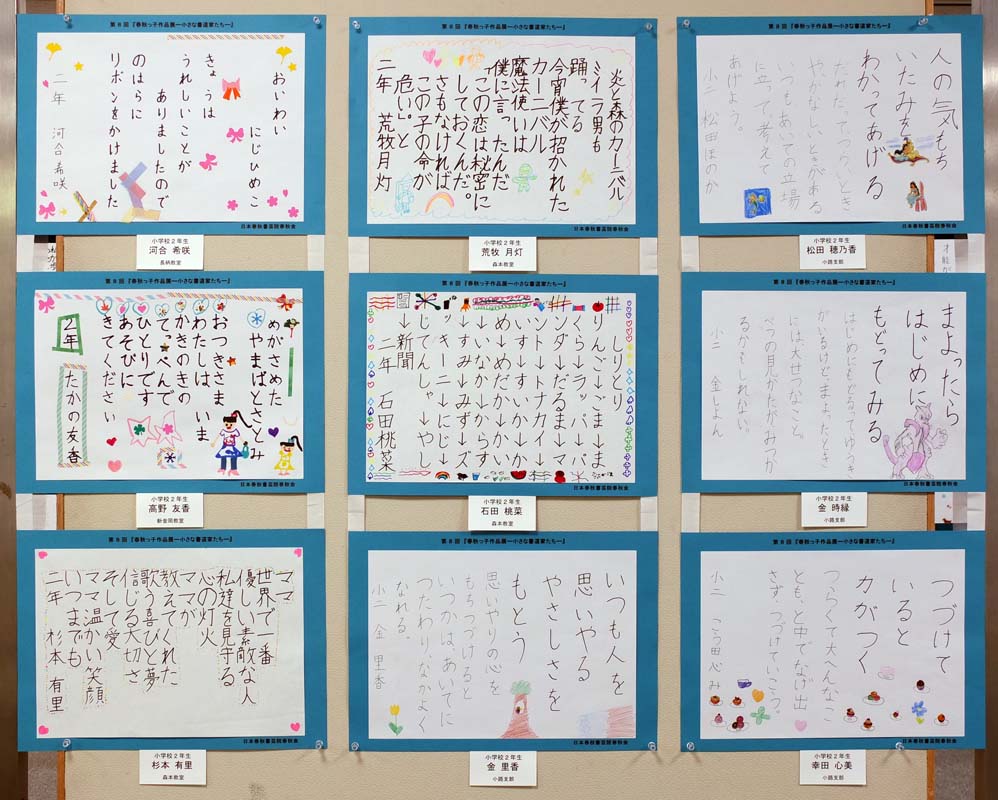 第8回『春秋っ子作品展―小さな書道家たち―』
おいわい
にじひめこ
きょうは
うれしいことが
ありましたので
のはらに
リボンをかけました
二年 河合希咲
日本春秋書芸院春秋会
小学校2年生
河合 希咲
長柄教室
炎と森のカーニバル
ミイラ男も
踊ってる
今宵僕が招かれた
カーニバル
魔法使いは
僕に言ったんだ
「この恋は秘密に
しておくんだ。
さもなければ
この子の命が
危い」と
二年 荒牧月灯
日本春秋書芸院春秋会
小学校2年生
荒牧 月灯
森本教室
第8回『春秋っ子作品展―小さな書道家たち―』
人の気もち
いたみを
わかってあげる
だれだってつらいとき
やかなしいときがある
いつもあいての立場
に立って考えて
あげよう。
小二 松田ほのか
日本春秋書芸院春秋会
小学校2年生
松田 穂乃香
小路支部
第8回『春秋っ子作品展―小さな書道家たち―』
めがさめた
やまばとさとみ
おつきさま
わたしは いま
かきのきの
てっぺんで
ひとりです
あそびに
きてください
2年 たかの友香
日本春秋書芸院春秋会
小学校2年生
高野 友香
新金岡教室
第8回『春秋っ子作品展―小さな書道家たち―』
しりとり
りんご→ごま→ま
くら→ラッパ→パ
ンダ→だるま→マ
ント→トナカイ→
いす→すいか→か
めだか→か
→いなか→からす
→すみ→みみず→ズ
ッキーニ→にじ→
じてんしゃ→やし
→新聞
二年 石田桃菜
日本春秋書芸院春秋会
小学校2年生
石田 桃菜
森本教室
第8回『春秋っ子作品展―小さな書道家たち―』
まよったら
はじめに
もどってみる
はじめにもどるってゆうき
がいるけどまよったとき
には、大せつなこと。
べつの見かたがみつか
るかもしれない。
小二 金しよん
日本春秋書芸院春秋会
小学校2年生
金 時縁
小路支部
第8回『春秋っ子作品展―小さな書道家たち―』
ママ
世界で一番
優しい素敵な人
私達を見守る
心の灯火
ママが
教えてくれた
歌う喜びと夢
信じる大切さ
そして愛
ママ温かい笑顔
いつまでも
二年 杉本有里
日本春秋書芸院春秋会
小学校2年生
杉本 有里
森本教室
第8回『春秋っ子作品展―小さな書道家たち―』
いつも人を
思いやる
やさしさを
もとう
思いやりの心を
もちつづけると
いつかは、あいてに
つたわり、なかよく
なれる。
小二 金 里香
日本春秋書芸院春秋会
小学校2年生
金 里香
小路支部
第8回『春秋っ子作品展―小さな書道家たち―』
つづけて
いると
力がつく
つらくて大へんなこ
とも、と中でなげ出
さず、つづけていこう。
小二 こう田心み
日本春秋書芸院春秋会
小学校2年生
幸田 心美
小路支部